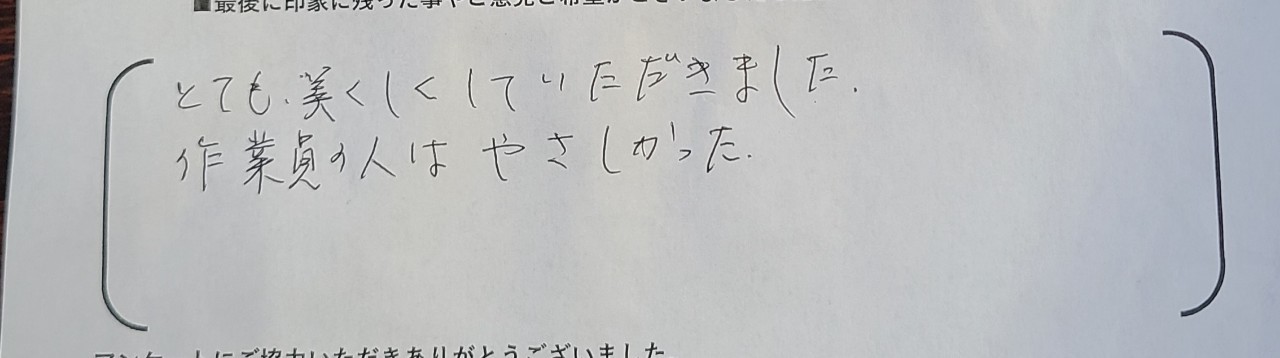 ■最後に印象に残った事やご意見ご希望が
とても、美くしくしていただきました.
作業員の人は やさしかった.
アンケートにご協力いただきありがとうございました